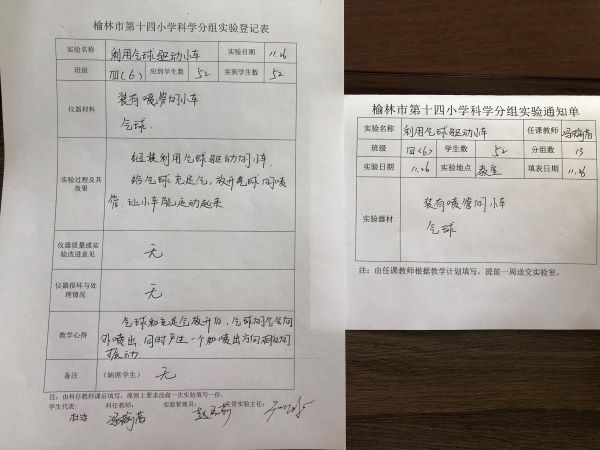 榆林市第十四小学科学分组实验登记表
实验名称 利用气球驱动小车 实验日期 11.26
班级 四(6) 应到学生数 52 实到学生数 52
仪器材料
装有喷管的小车
气球.
实验过程及其效果
组装利用气球驱动的小车.
给气球充足气,放开气球的喷
管,让小车能运动起来
仪器质量或实验改进意见 无
仪器损坏与处理情况 无
教学心得
气球和充足气放开后,气球的气会向
外喷出,同时产生一个和喷出方向相反的
振动
备注 (缺席学生) 无
注:由科任教师课后填写,原则上要求没做一次实验填写一份。
学生代表: 科任教师: 实验管理员: 主管实验主任:
榆林市第十四小学科学分组实验通知单
实验名称 利用气球驱动小车 任课教师
班级 四(6) 学生数 52 分组数 13
实验日期 11.26 实验地点 教室 填表日期 11.26
实验器材
装有喷管的小车
气球
注:由任课教师根据教学计划填写,提前一周送交实验室。